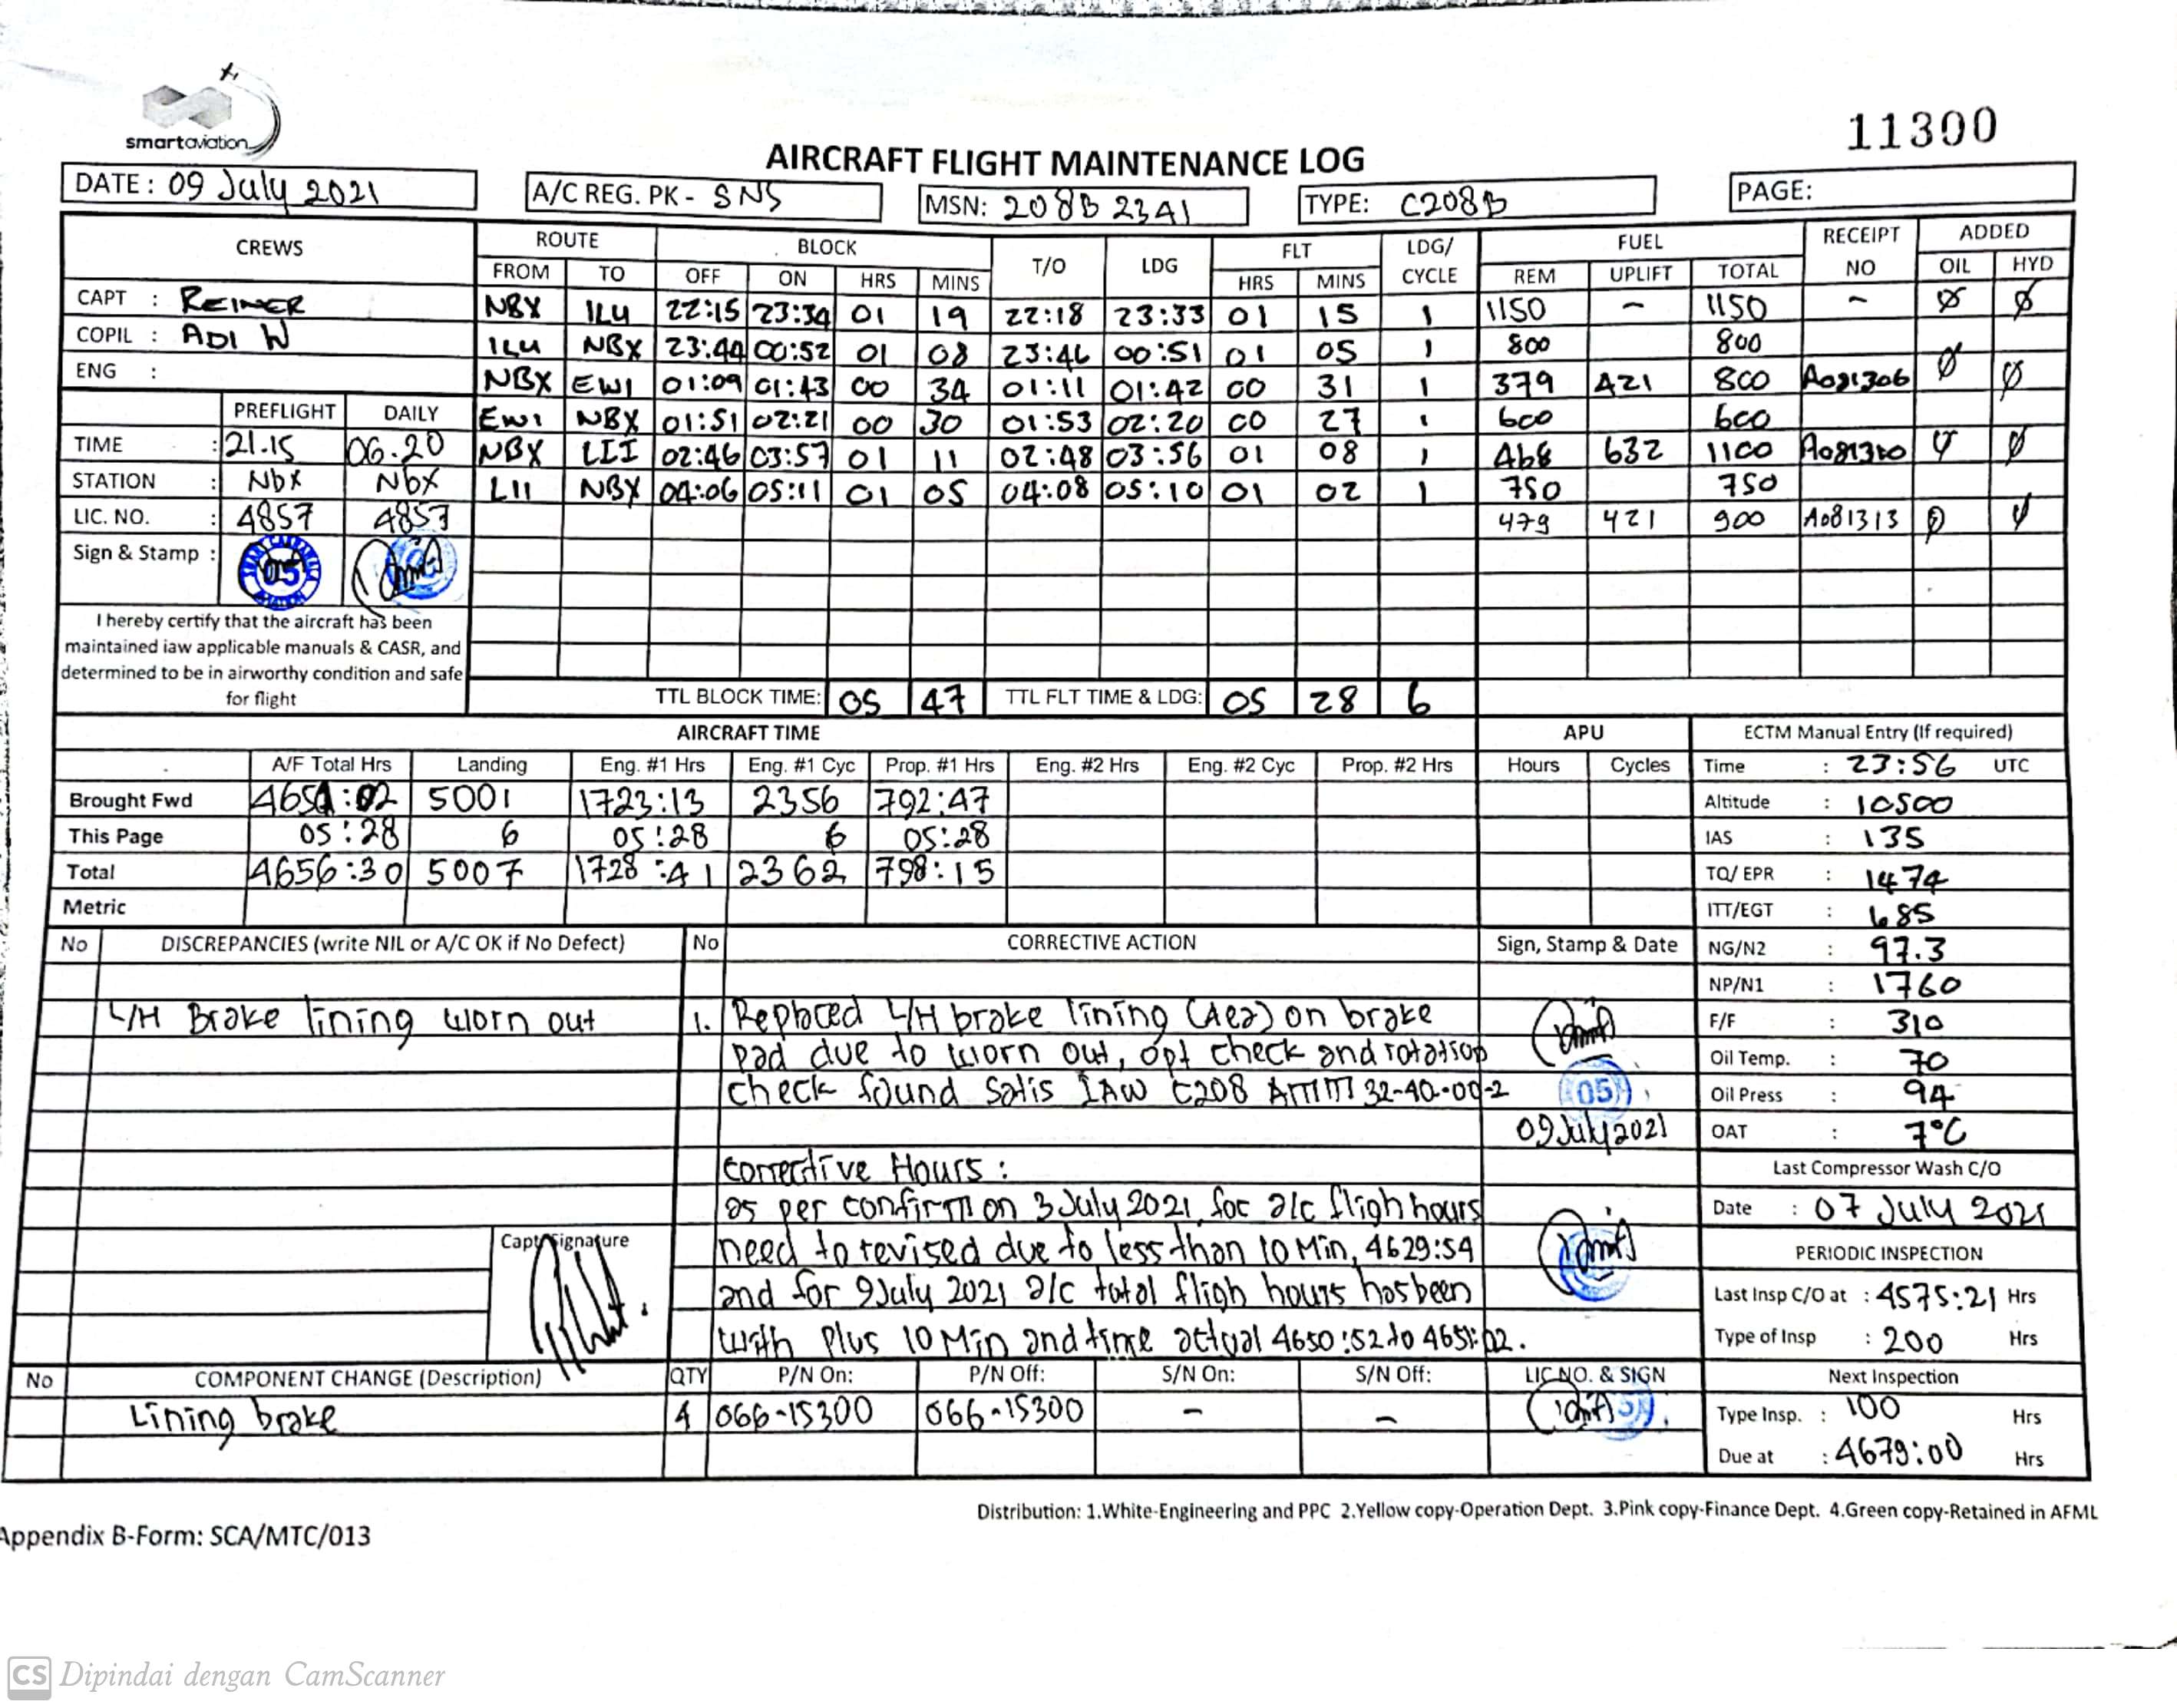 smartaviation
11300
AIRCRAFT FLIGHT MAINTENANCE LOG
DATE : 09 July 2021 A/C REG. PK - SNS MSN: 208B 2341 TYPE: C208B PAGE:
CREWS ROUTE BLOCK T/O LDG FLT LDG/ CYCLE FUEL RECEIPT NO ADDED
FROM TO OFF ON HRS MINS HRS MINS REM UPLIFT TOTAL OIL HYD
CAPT : REINER NBX ILU 22:15 23:34 01 19 22:18 23:33 01 15 1 1150 - 1150 - Ø Ø
COPIL : ADI W ILU NBX 23:44 00:52 01 08 23:46 00:51 01 05 1 800 800
ENG : NBX EWI 01:09 01:43 00 34 01:11 01:42 00 31 1 379 421 800 A081306 Ø Ø
PREFLIGHT DAILY EWI NBX 01:51 02:21 00 30 01:53 02:20 00 27 1 600 600
TIME : 21.15 06.20 NBX LII 02:46 03:57 01 11 02:48 03:56 01 08 1 468 632 1100 Ø
STATION : Nbx Nbx LII NBX 04:06 05:11 01 05 04:08 05:10 01 02 1 750 750
LIC. NO. : 4857 4857 479 421 900 A081313 Ø Ø
Sign & Stamp : 05
I hereby certify that the aircraft has been
maintained iaw applicable manuals & CASR, and
determined to be in airworthy condition and safe
for flight
TTL BLOCK TIME: 05 47 TTL FLT TIME & LDG: 05 28 6
AIRCRAFT TIME APU ECTM Manual Entry (If required)
A/F Total Hrs Landing Eng. #1 Hrs Eng. #1 Cyc Prop. #1 Hrs Eng. #2 Hrs Eng. #2 Cyc Prop. #2 Hrs Hours Cycles Time : 23:56 UTC
Brought Fwd 4651:02 5001 1723:13 2356 792:47 Altitude : 10500
This Page 05:28 6 05:28 6 05:28 IAS : 135
Total 4656:30 5007 1728:41 2362 798:15 TQ/ EPR : 1474
Metric ITT/EGT : 685
No DISCREPANCIES (write NIL or A/C OK if No Defect) No CORRECTIVE ACTION Sign, Stamp & Date NG/N2 : 97.3
NP/N1 : 1760
L/H Brake lining worn out 1. Replaced L/H brake lining (4ea) on brake F/F : 310
pad due to worn out, opt check and rotation Oil Temp. : 70
check found Satis IAW C208 AMM 32-40-00-2 05 Oil Press : 94
09 July 2021 OAT : 7°C
Corrective Hours : Last Compressor Wash C/O
as per confirm on 3 July 2021, for a/c fligh hours Date : 07 July 2021
Capt Signature need to revised due to less than 10 Min, 4629:54 PERIODIC INSPECTION
and for 9 July 2021 a/c total fligh hours hasbeen Last Insp C/O at : 4575:21 Hrs
with plus 10 Min and time actual 4650:52 to 4651:02. Type of Insp : 200 Hrs
No COMPONENT CHANGE (Description) QTY P/N On: P/N Off: S/N On: S/N Off: LIC NO. & SIGN Next Inspection
Lining brake 4 066-15300 066-15300 - - Type Insp. : 100 Hrs
Due at : 4679:00 Hrs
Distribution: 1.White-Engineering and PPC 2.Yellow copy-Operation Dept. 3.Pink copy-Finance Dept. 4.Green copy-Retained in AFML
Appendix B-Form: SCA/MTC/013
CS Dipindai dengan CamScanner